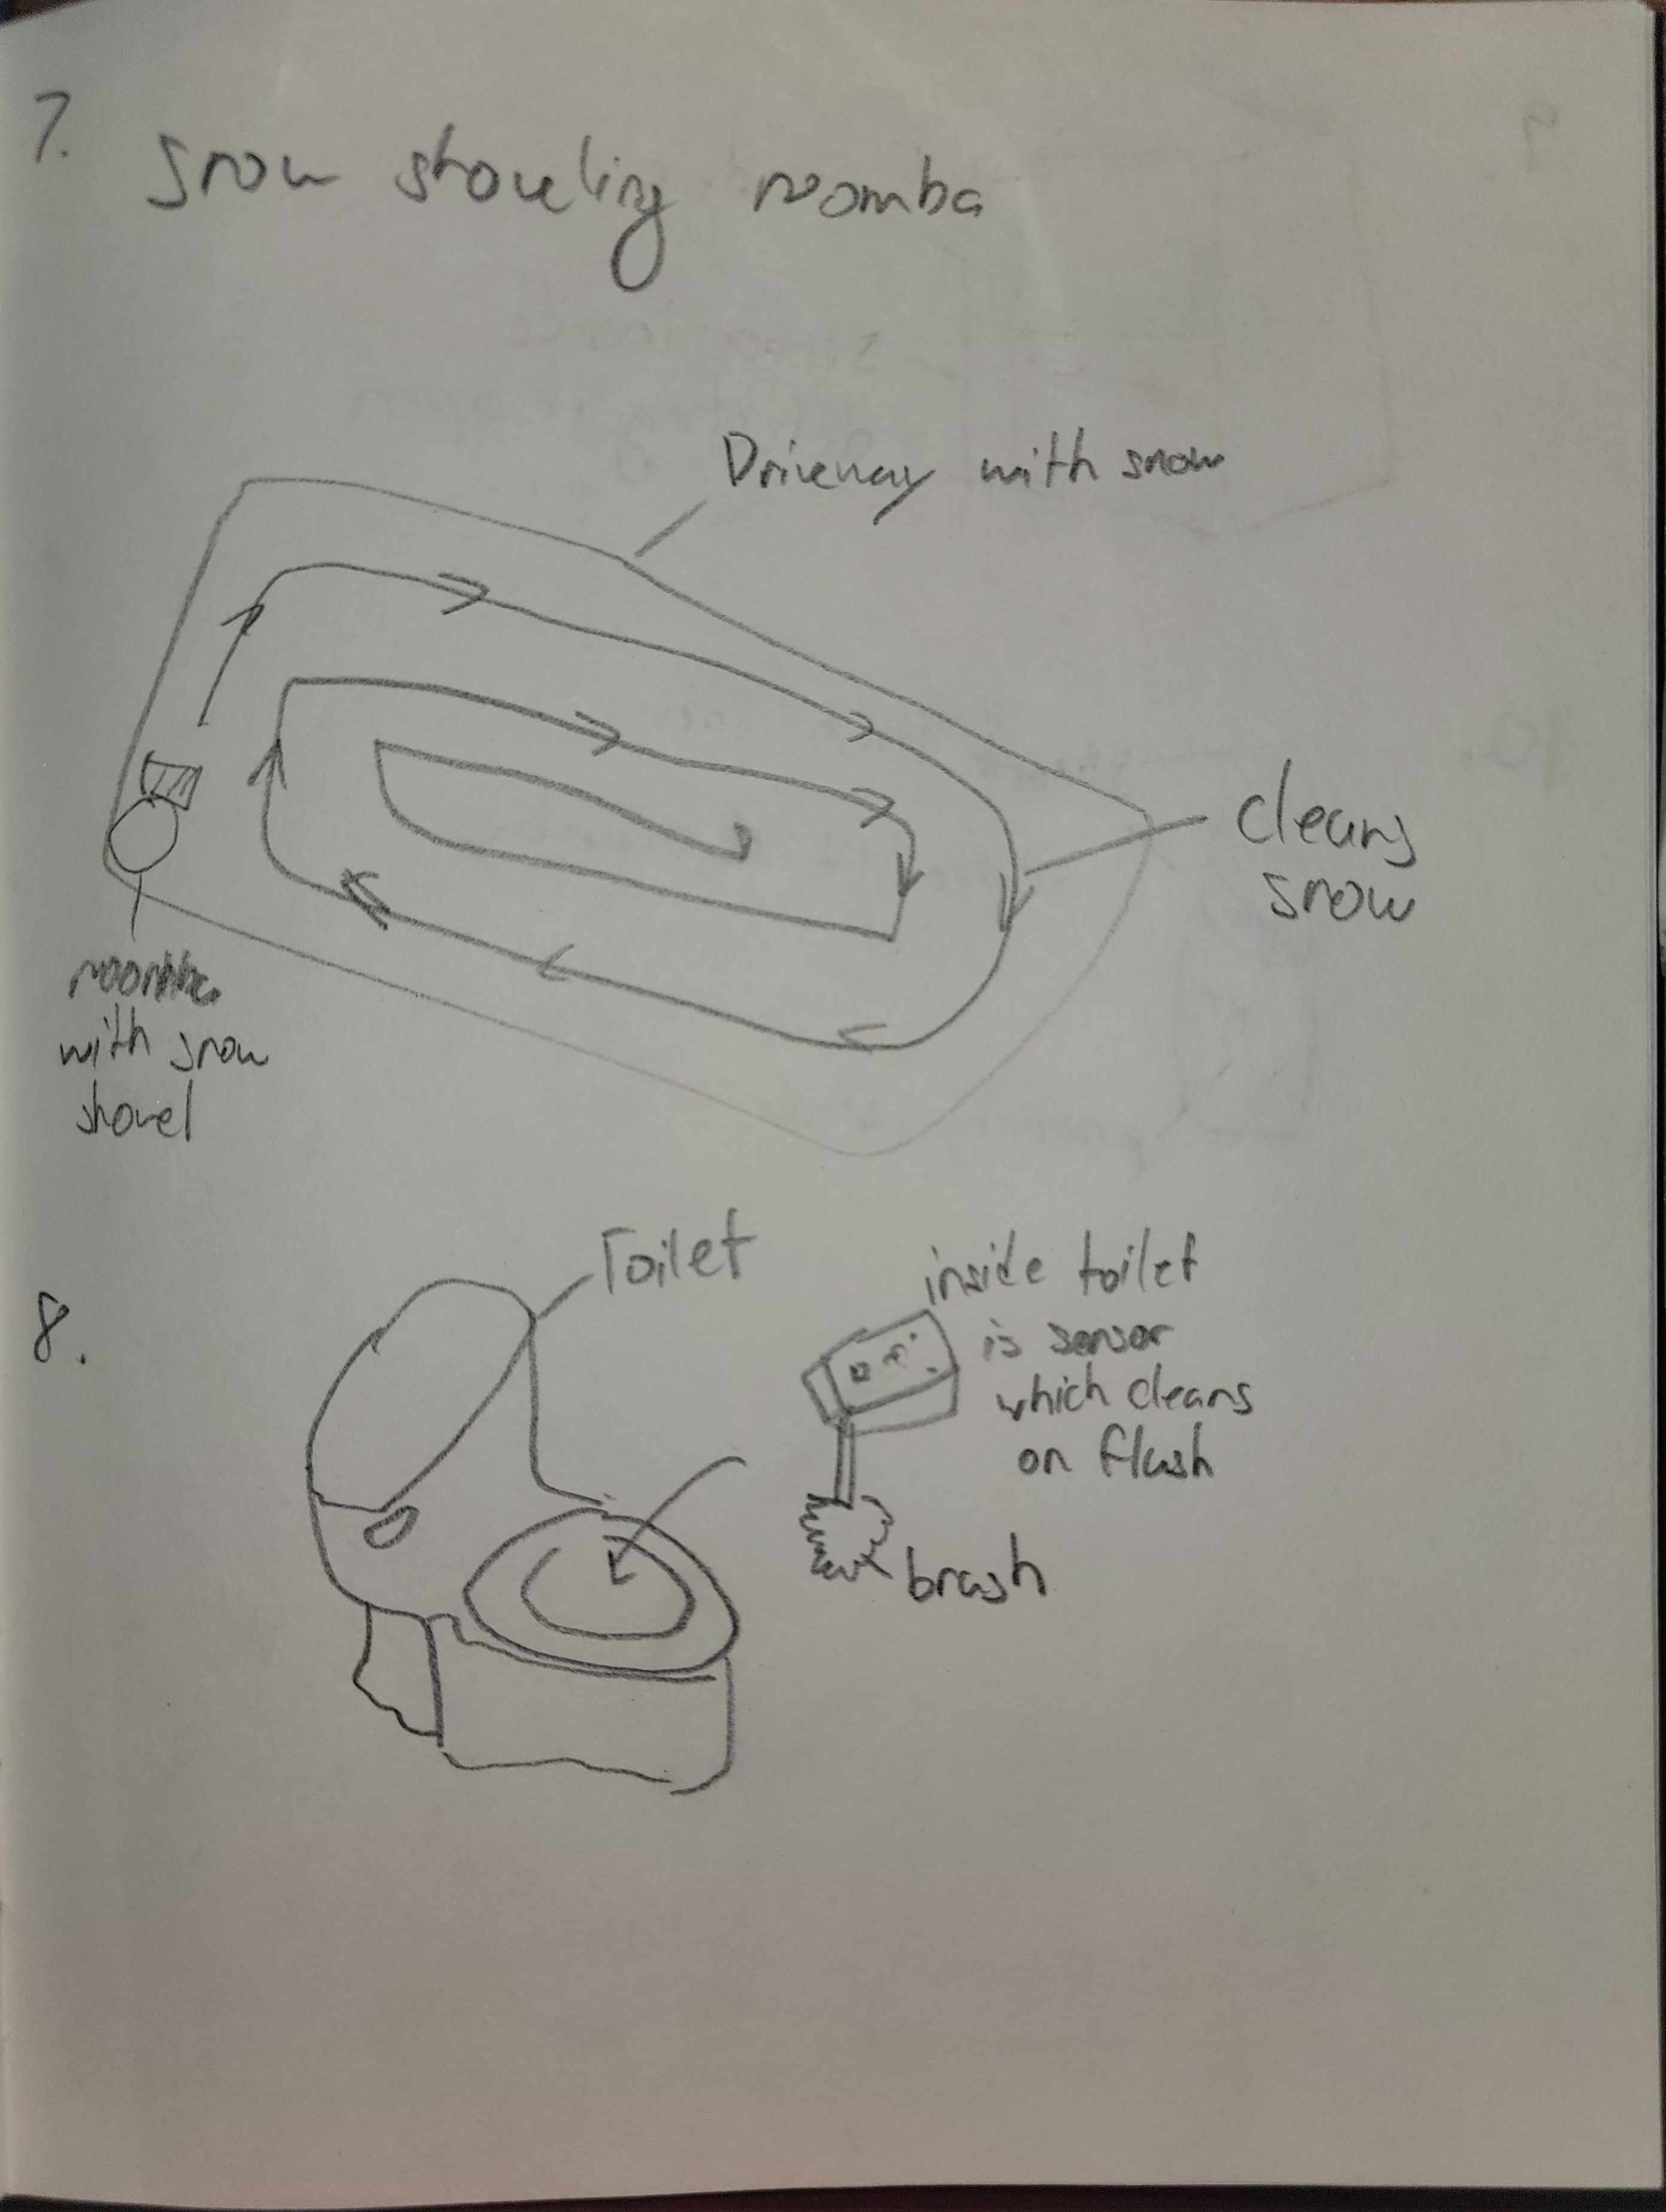 7. Snow shoveling roomba
Driveway with snow
cleans
snow
roomba
with snow
shovel
8.
Toilet
inside toilet
is sensor
which cleans
on flush
brush